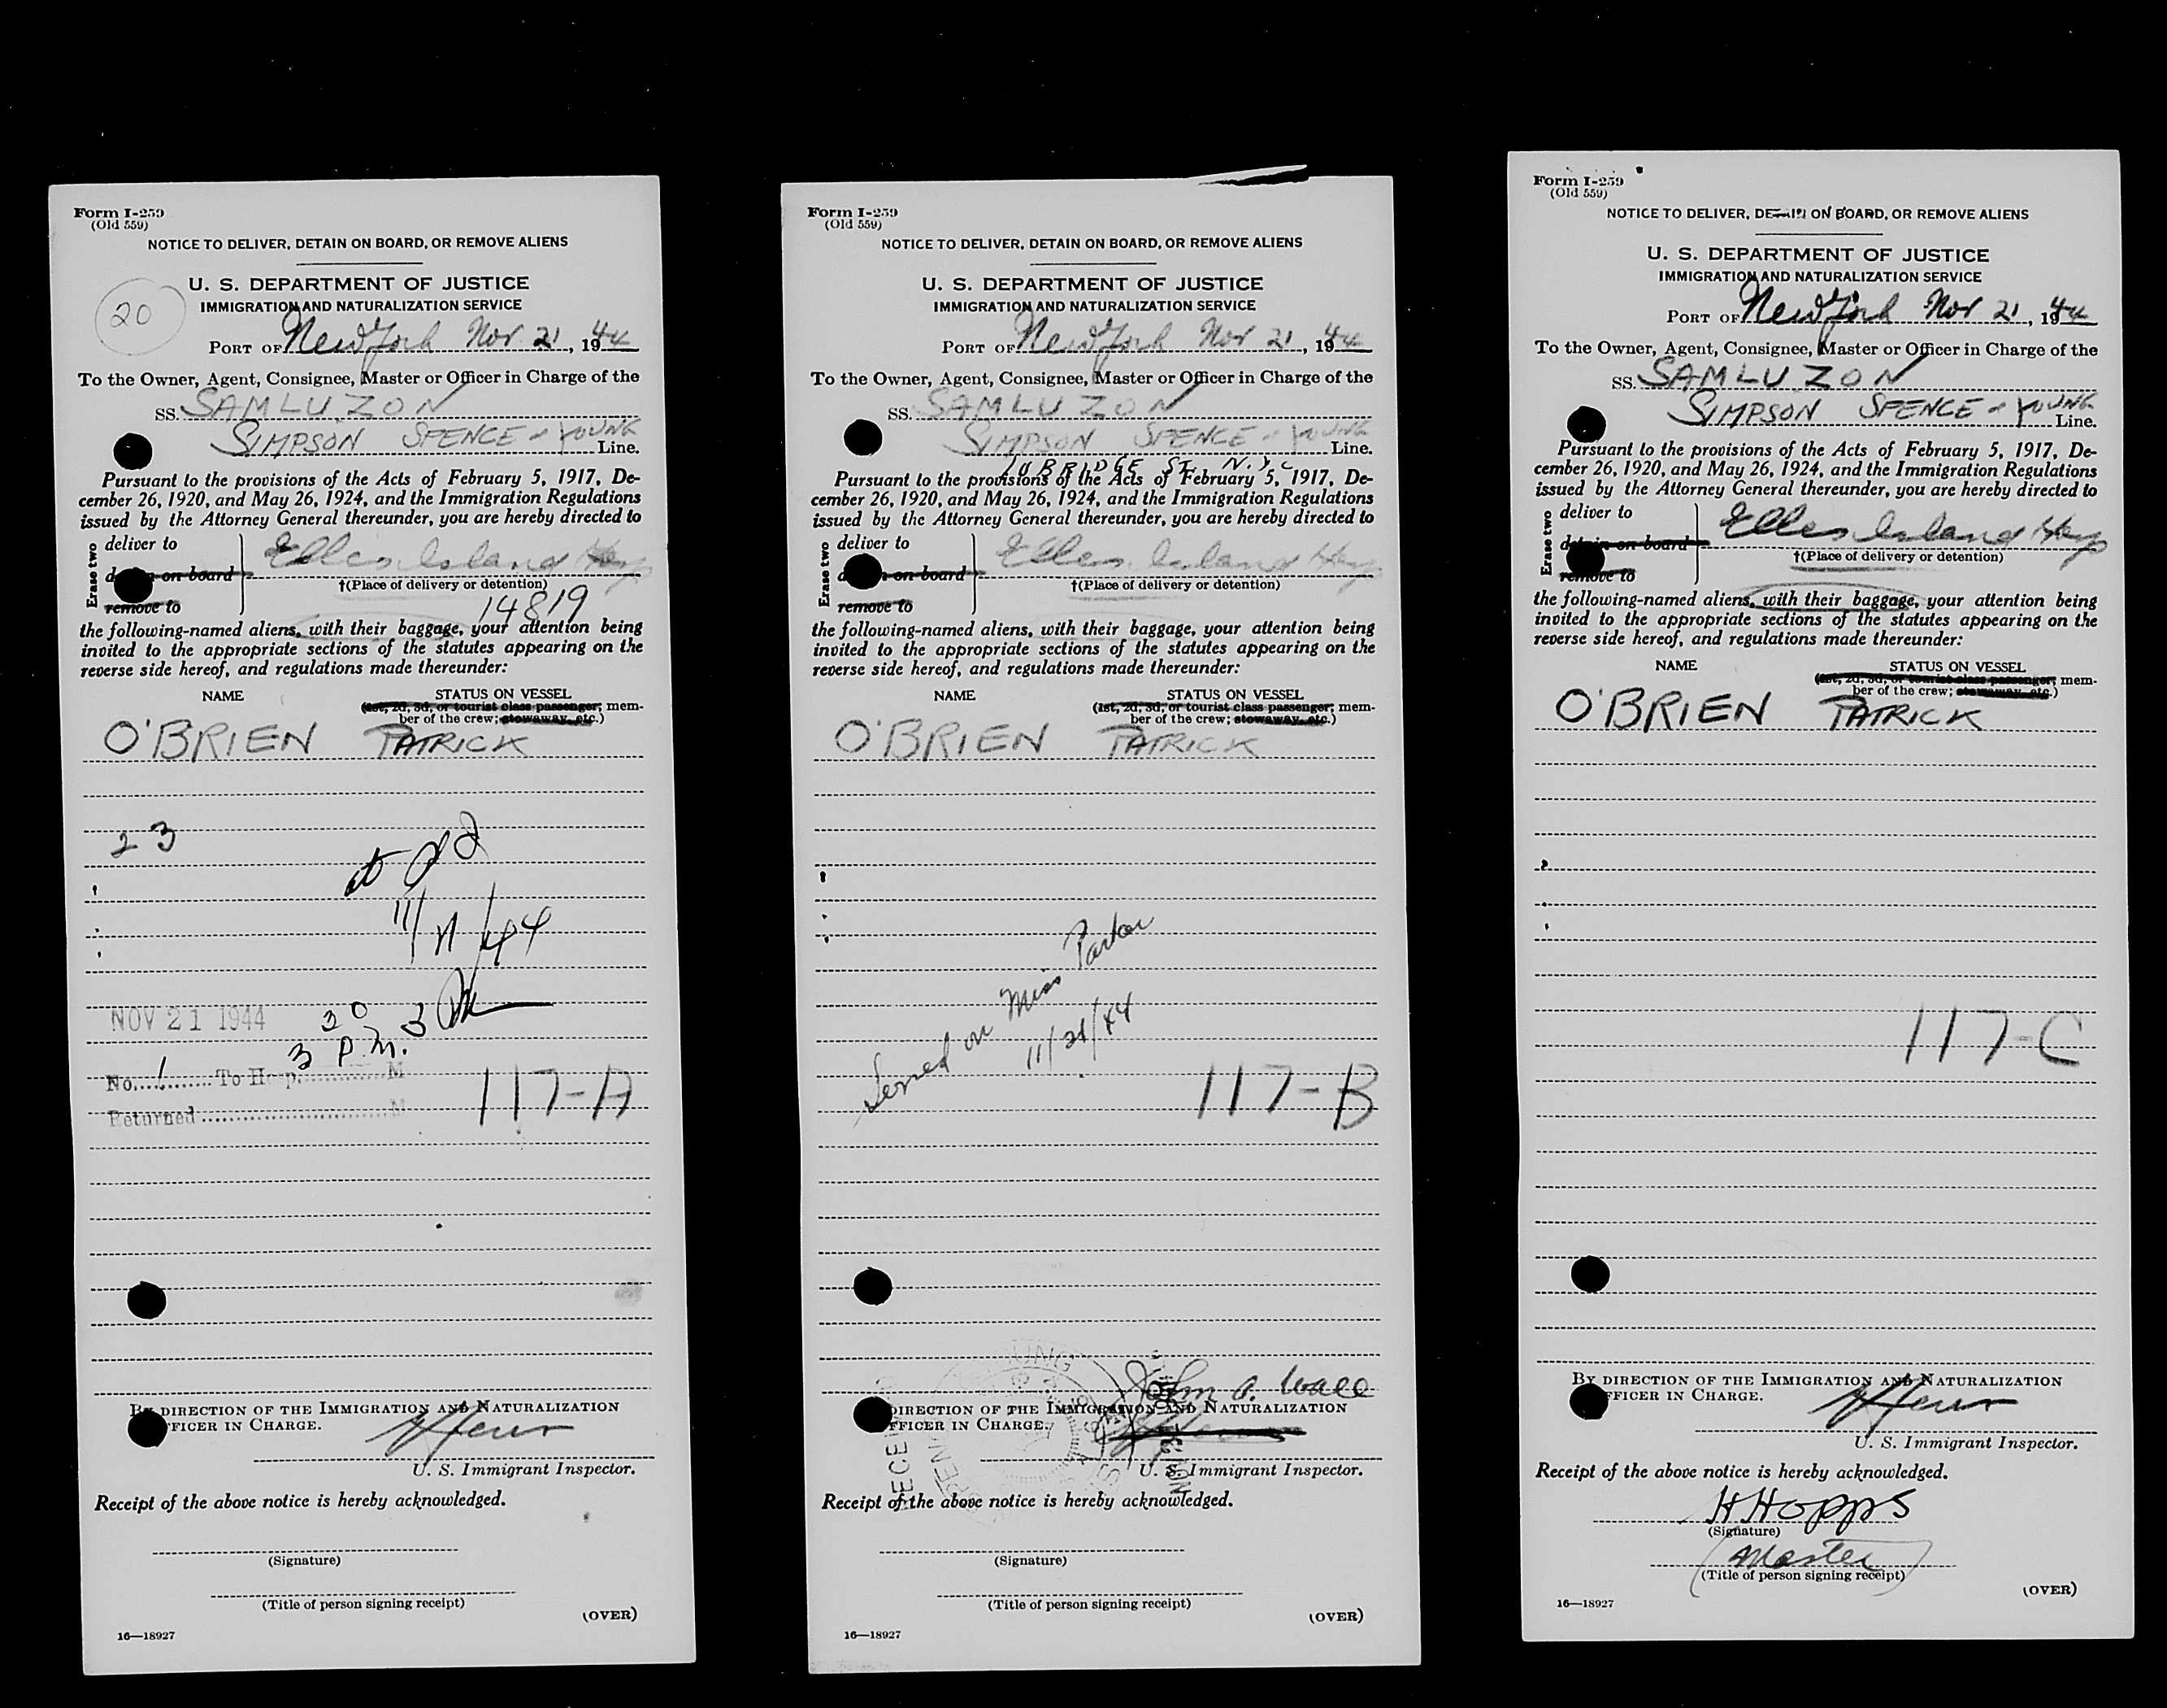 Form I-259
(Old 559)
NOTICE TO DELIVER, DETAIN ON BOARD, OR REMOVE ALIENS
U. S. DEPARTMENT OF JUSTICE
IMMIGRATION AND NATURALIZATION SERVICE
20
PORT OF New York Nov 21, 1944
To the Owner, Agent, Consignee, Master or Officer in Charge of the
SS. SAMLUZON
SIMPSON SPENCE & YOUNG Line.
Pursuant to the provisions of the Acts of February 5, 1917, De-
cember 26, 1920, and May 26, 1924, and the Immigration Regulations
issued by the Attorney General thereunder, you are hereby directed to
Erase two
deliver to
detain on board
remove to
Ellis Island Hosp
†(Place of delivery or detention)
14819
the following-named aliens, with their baggage, your attention being
invited to the appropriate sections of the statutes appearing on the
reverse side hereof, and regulations made thereunder:
NAME STATUS ON VESSEL
(1st, 2d, 3d, or tourist class passenger; mem-
ber of the crew; stowaway, etc.)
O'BRIEN PATRICK
23
11/21/44
NOV 21 1944
3 30 P.M.
No. 1 To Hosp. M
Returned M
117-A
BY DIRECTION OF THE IMMIGRATION AND NATURALIZATION
OFFICER IN CHARGE.
U. S. Immigrant Inspector.
Receipt of the above notice is hereby acknowledged.
(Signature)
(Title of person signing receipt)
(OVER)
16—18927
Form I-259
(Old 559)
NOTICE TO DELIVER, DETAIN ON BOARD, OR REMOVE ALIENS
U. S. DEPARTMENT OF JUSTICE
IMMIGRATION AND NATURALIZATION SERVICE
PORT OF New York Nov 21, 1944
To the Owner, Agent, Consignee, Master or Officer in Charge of the
SS. SAMLUZON
SIMPSON SPENCE & YOUNG Line.
10 BRIDGE ST. N.Y.C
Pursuant to the provisions of the Acts of February 5, 1917, De-
cember 26, 1920, and May 26, 1924, and the Immigration Regulations
issued by the Attorney General thereunder, you are hereby directed to
Erase two
deliver to
detain on board
remove to
Ellis Island Hosp
†(Place of delivery or detention)
the following-named aliens, with their baggage, your attention being
invited to the appropriate sections of the statutes appearing on the
reverse side hereof, and regulations made thereunder:
NAME STATUS ON VESSEL
(1st, 2d, 3d, or tourist class passenger; mem-
ber of the crew; stowaway, etc.)
O'BRIEN PATRICK
Served on Miss Parker
11/21/44
117-B
John A. Wall
BY DIRECTION OF THE IMMIGRATION AND NATURALIZATION
OFFICER IN CHARGE.
U. S. Immigrant Inspector.
Receipt of the above notice is hereby acknowledged.
(Signature)
(Title of person signing receipt)
(OVER)
16—18927
Form I-259
(Old 559)
NOTICE TO DELIVER, DETAIN ON BOARD, OR REMOVE ALIENS
U. S. DEPARTMENT OF JUSTICE
IMMIGRATION AND NATURALIZATION SERVICE
PORT OF New York Nov 21, 1944
To the Owner, Agent, Consignee, Master or Officer in Charge of the
SS. SAMLUZON
SIMPSON SPENCE & YOUNG
Line.
Pursuant to the provisions of the Acts of February 5, 1917, De-
cember 26, 1920, and May 26, 1924, and the Immigration Regulations
issued by the Attorney General thereunder, you are hereby directed to
Erase two
deliver to
detain on board
remove to
Ellis Island Hosp
†(Place of delivery or detention)
the following-named aliens, with their baggage, your attention being
invited to the appropriate sections of the statutes appearing on the
reverse side hereof, and regulations made thereunder:
NAME STATUS ON VESSEL
(1st, 2d, 3d, or tourist class passenger; mem-
ber of the crew; stowaway, etc.)
O'BRIEN PATRICK
117-C
BY DIRECTION OF THE IMMIGRATION AND NATURALIZATION
OFFICER IN CHARGE.
U. S. Immigrant Inspector.
Receipt of the above notice is hereby acknowledged.
H Hopps
(Signature)
Master
(Title of person signing receipt)
(OVER)
16—18927